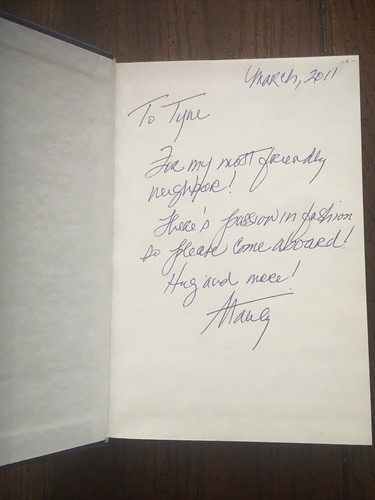 March, 2011
To Tyne
For my most friendly
neighbor!
There's passion in fashion
so please come aboard!
Hug and more!
Stanley